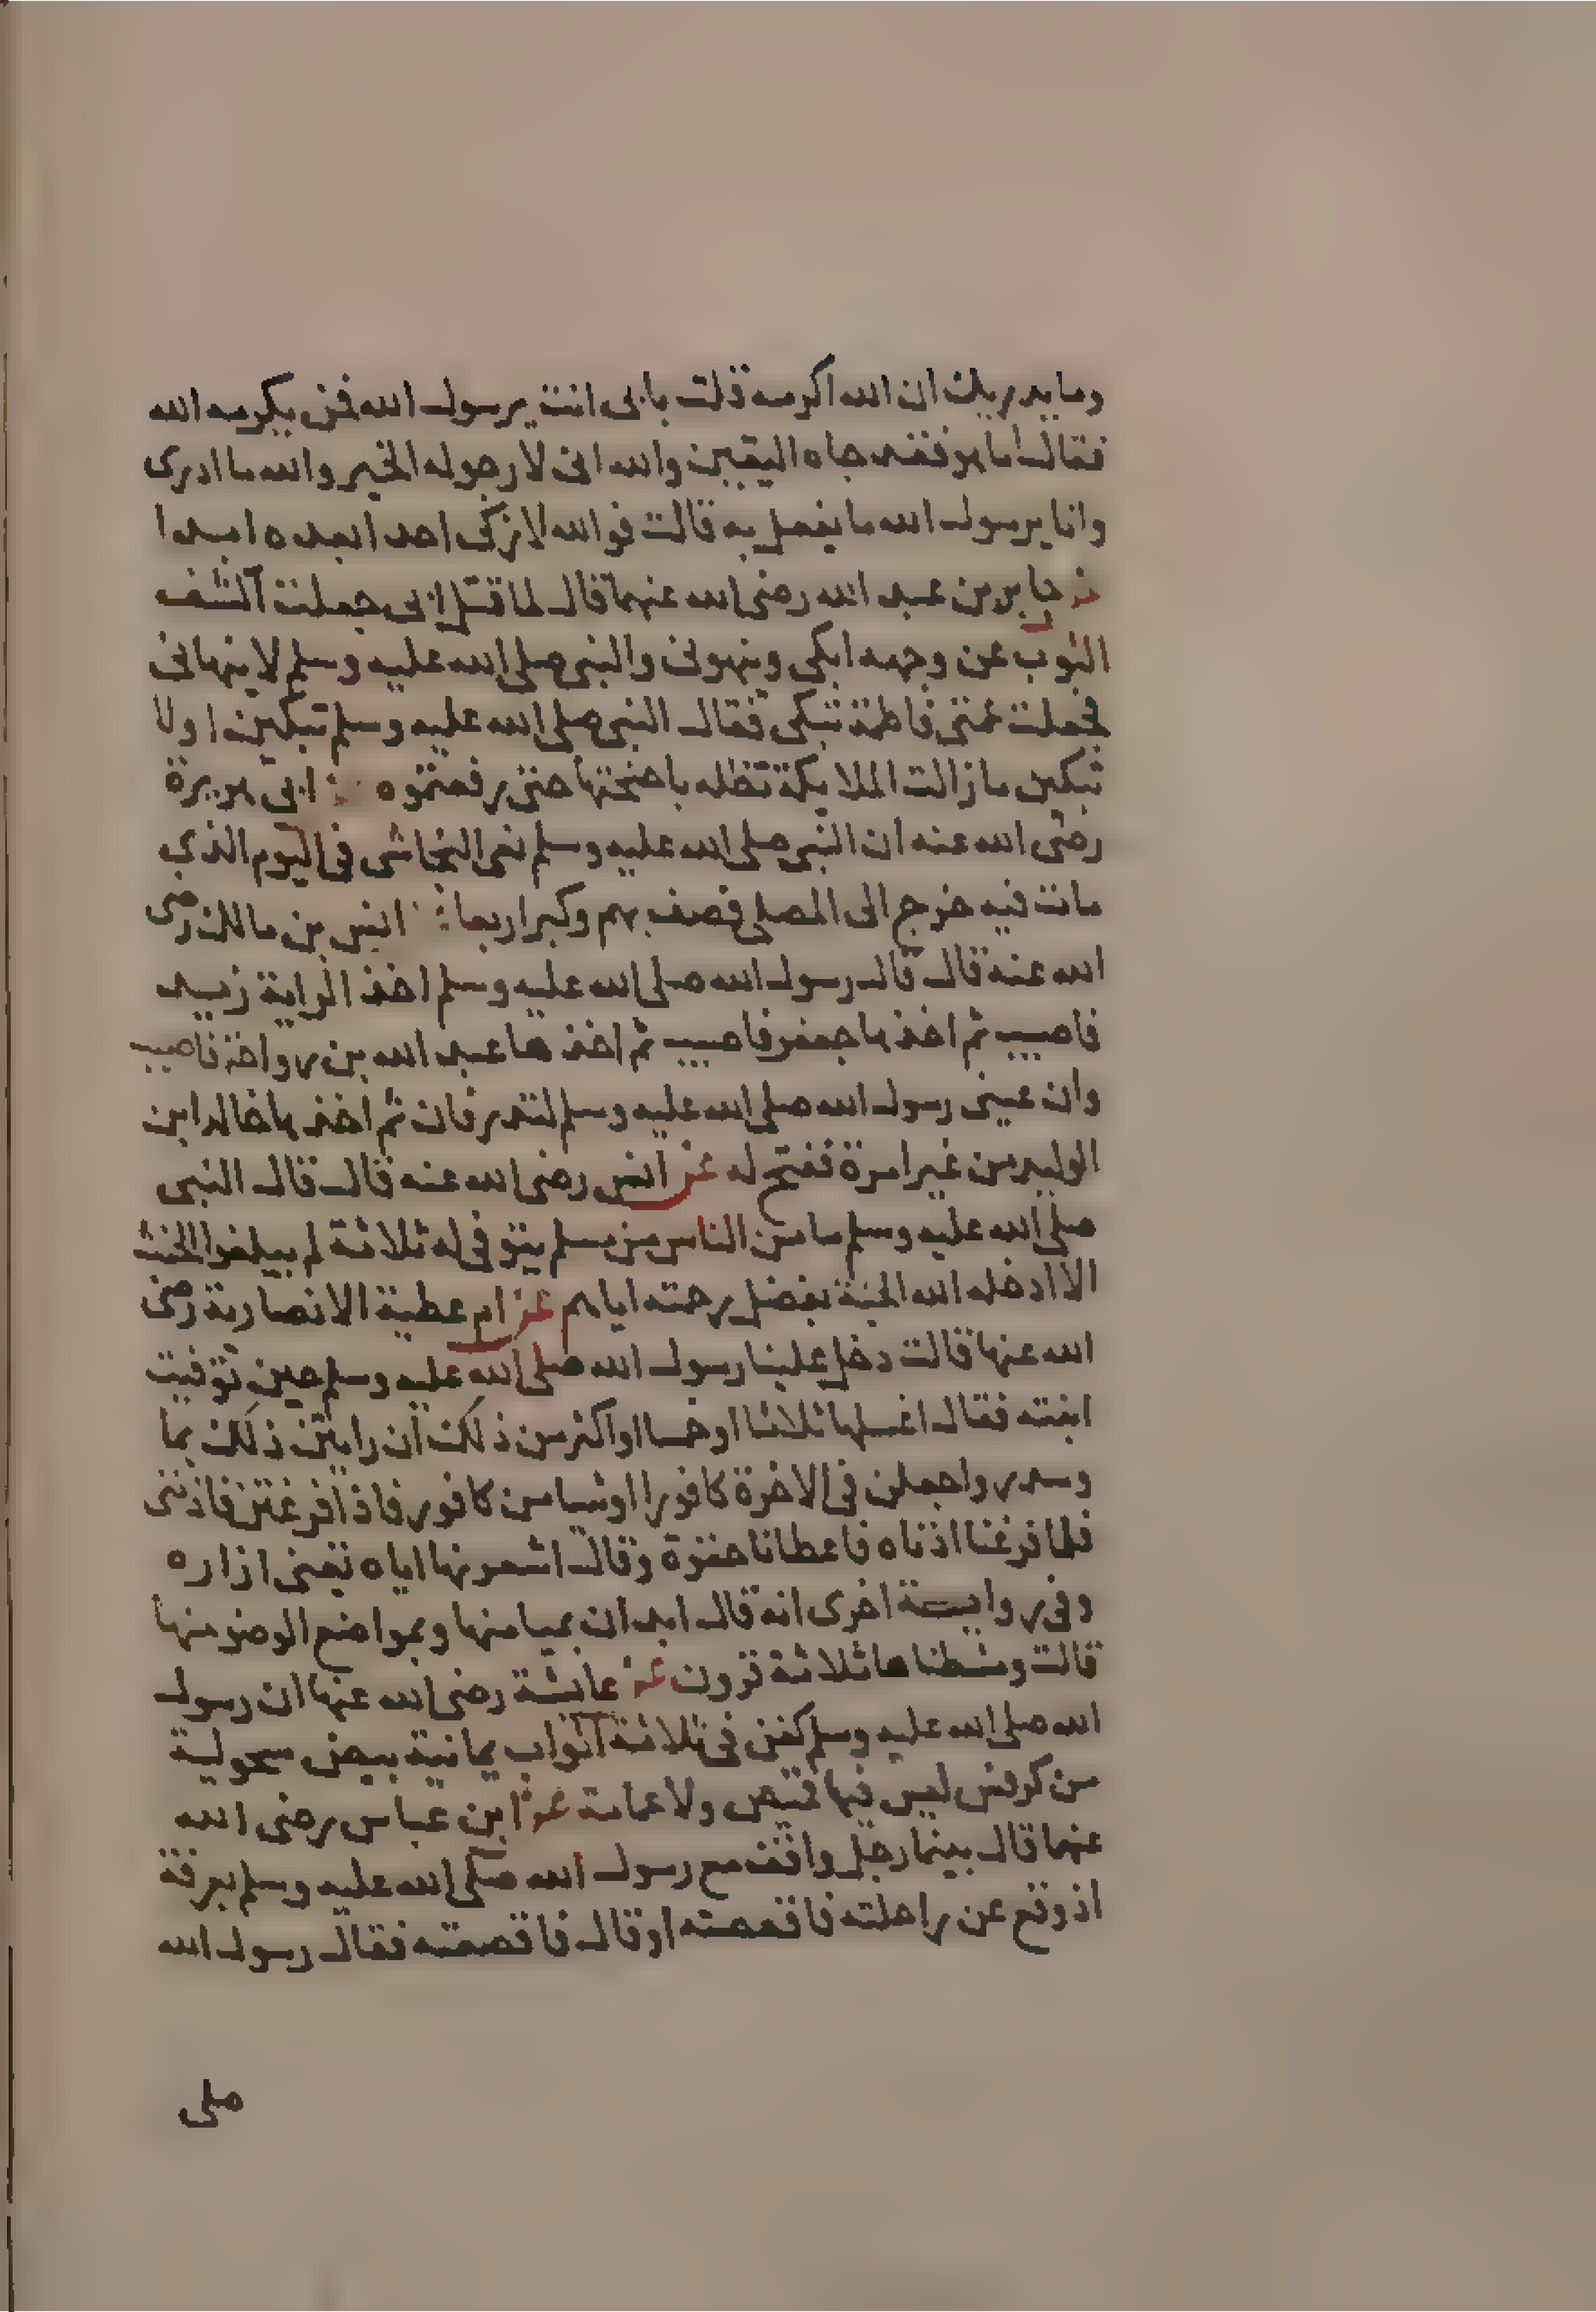 وما يدريك ان الله اكرمه قلت بابى انت يرسول الله فمن يكرمه الله
فقال اما هو فقد جاه اليقين والله انى لارجو له الخير والله ما ادرى
وانا يرسول الله ما يفعل به قالت فو الله لا ازكى احدا بعده ابدا
عن جابر بن عبد الله رضى الله عنهما قال لما قتل ابى جعلت اكشف
الثوب عن وجهه ابكى وينهونى والنبى صلى الله عليه وسلم لا ينهانى
فجعلت عمتى فاطمة تبكى فقال النبى صلى الله عليه وسلم تبكين اولا
تبكين ما زالت الملايكة تظله باجنحتها حتى رفعتموه عن ابى هريرة
رضى الله عنه ان النبى صلى الله عليه وسلم نعى النجاشى فى اليوم الذي
مات فيه خرج الى المصلى فصف بهم وكبر اربعا عن انس بن مالك رضى
الله عنه قال قال رسول الله صلى الله عليه وسلم اخذ الراية زيد
فاصيب ثم اخذها جعفر فاصيب ثم اخذها عبد الله بن رواحة فاصيب
وان عينى رسول الله صلى الله عليه وسلم لتذرفان ثم اخذها خالد ابن
الوليد من غير امرة ففتح له عن انس رضى الله عنه قال قال النبى
صلى الله عليه وسلم ما من الناس من مسلم يتوفى له ثلاثة لم يبلغوا الحنث
الا ادخله الله الجنة بفضل رحمته اياهم عن ام عطية الانصارية رضى
الله عنها قالت دخل علينا رسول الله صلى الله عليه وسلم حين توفيت
ابنته فقال اغسلنها ثلاثا او خمسا او اكثر من ذلك ان رايتن ذلك بما
وسدر واجعلن فى الاخرة كافورا او شيا من كافور فاذا فرغتن فاذننى
فلما فرغنا اذناه فاعطانا حقوة وقال اشعرونها اياه تعنى ازاره
وفى رواية اخرى انه قال ابدان بميامنها وبمواضع الوضو منها
قالت ومشطناها ثلاثة قرون عن عائشة رضى الله عنها ان رسول
الله صلى الله عليه وسلم كفن فى ثلاثة اثواب يمانية بيض سحولية
من كرفس ليس فيها قميص ولا عمامة عن ابن عباس رضى الله
عنهما قال بينما رجل واقف مع رسول الله صلى الله عليه وسلم بعرفة
اذ وقع عن راحلته فاقعصته او قال فاقصعته فقال رسول الله
صلى